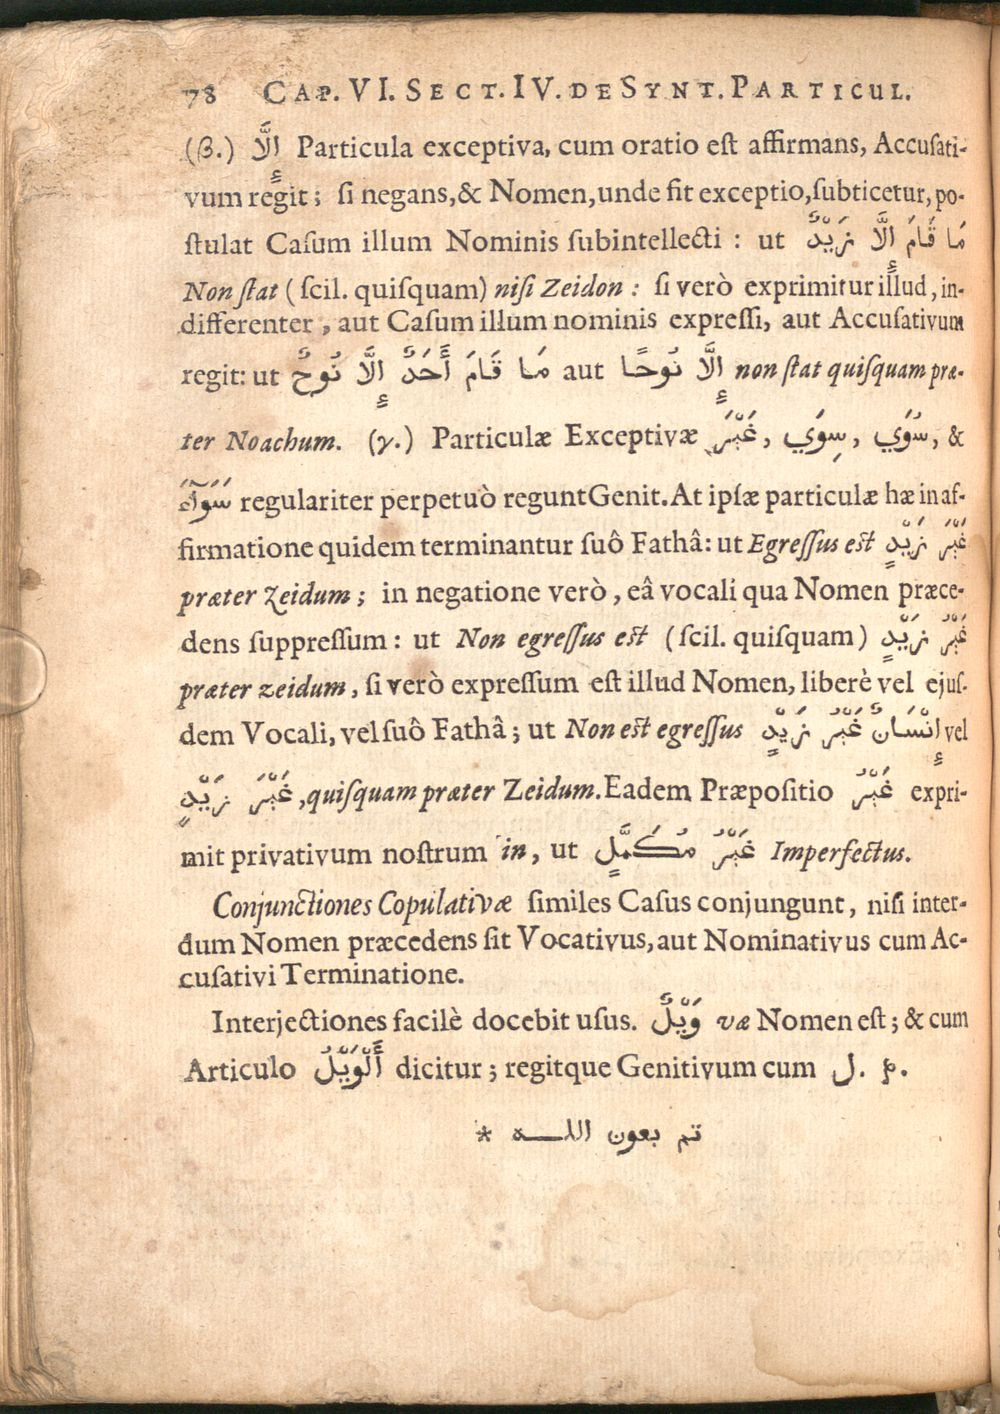 78 CAP. VI. SECT. IV. DE SYNT. PARTICUL.
(β.) إِلَّا Particula exceptiva, cum oratio eſt affirmans, Accuſati-
vum regit; ſi negans, & Nomen, unde fit exceptio, ſubticetur, po-
ſtulat Caſum illum Nominis ſubintellecti : ut مَا قَامَ إِلَّا زَيْدٌ
Non ſtat ( ſcil. quiſquam) niſi Zeidon : ſi verò exprimitur illud, in-
differenter, aut Caſum illum nominis expreſſi, aut Accuſativum
regit: ut مَا قَامَ أَحَدٌ إِلَّا نُوحٌ aut إِلَّا نُوحًا non ſtat quiſquam præ-
ter Noachum. (γ.) Particulæ Exceptivæ غَيْرَ, سِوَي, سُوَي, &
سَوَآءَ regulariter perpetuò regunt Genit. At ipſæ particulæ hæ in af-
firmatione quidem terminantur ſuô Fathâ: ut Egreſſus est غَيْرَ زَيْدٍ
præter Zeidum; in negatione verò, eâ vocali qua Nomen præce-
dens ſuppreſſum: ut Non egreſſus est (ſcil. quiſquam) غَيْرُ زَيْدٍ
præter zeidum, ſi verò expreſſum eſt illud Nomen, liberè vel ejuſ-
dem Vocali, vel ſuô Fathâ; ut Non est egreſſus إِنْسَانٌ غَيْرُ زَيْدٍ vel
غَيْرَ زَيْدٍ, quiſquam præter Zeidum. Eadem Præpoſitio غَيْرُ expri-
mit privativum noſtrum in, ut غَيْرُ مُكَمَّلٍ Imperfectus.
Conjunctiones Copulativæ ſimiles Caſus conjungunt, niſi inter-
dum Nomen præcedens ſit Vocativus, aut Nominativus cum Ac-
cuſativi Terminatione.
Interjectiones facilè docebit uſus. وَيْلٌ væ Nomen eſt; & cum
Articulo أَلْوَيْلُ dicitur; regitque Genitivum cum ل. p.
تم بعون اللـــه *